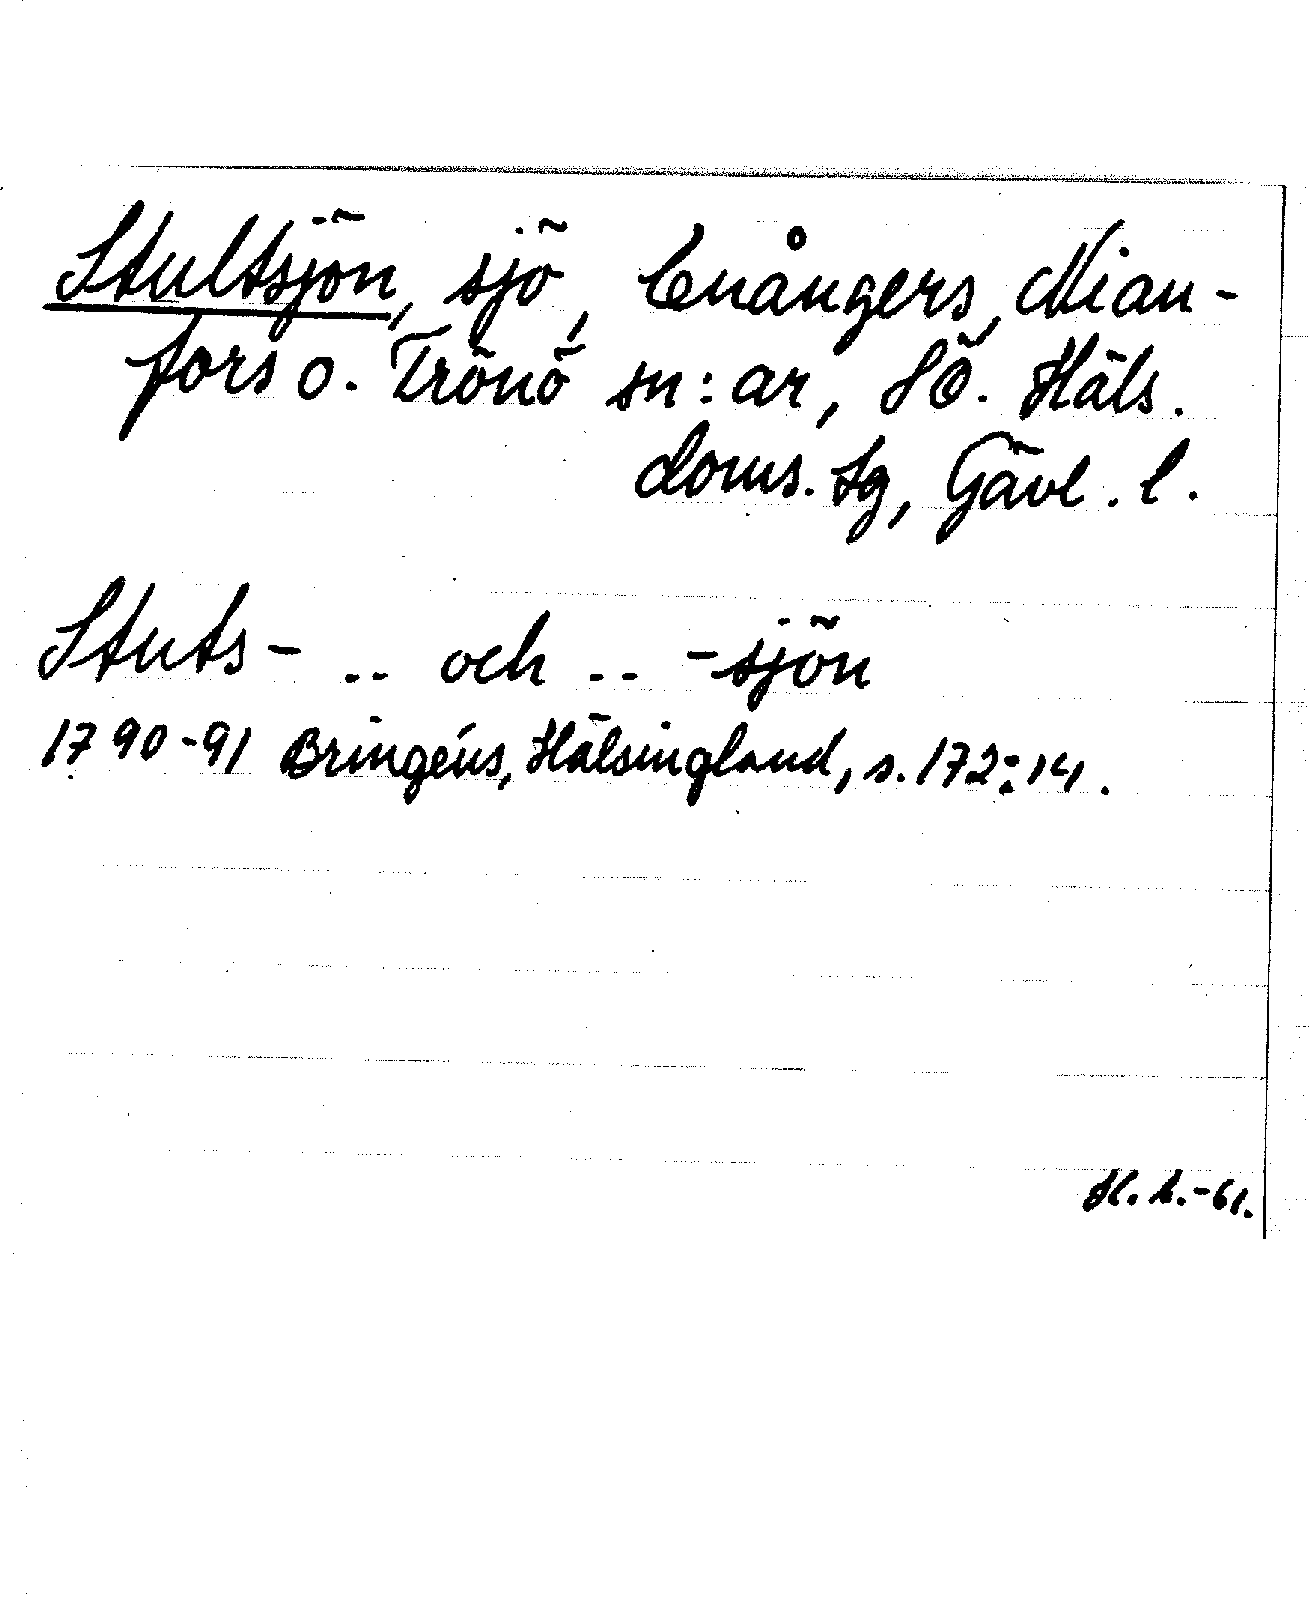 Stultsjön, sjö, Enångers, Nian-
fors o. Trönö sn:ar, SÖ. Häls.
doms.sg, Gävl. l.
Stuts- .. och .. -sjön
1790-91 Bringéus, Hälsingland, s. 172:14.
-61.